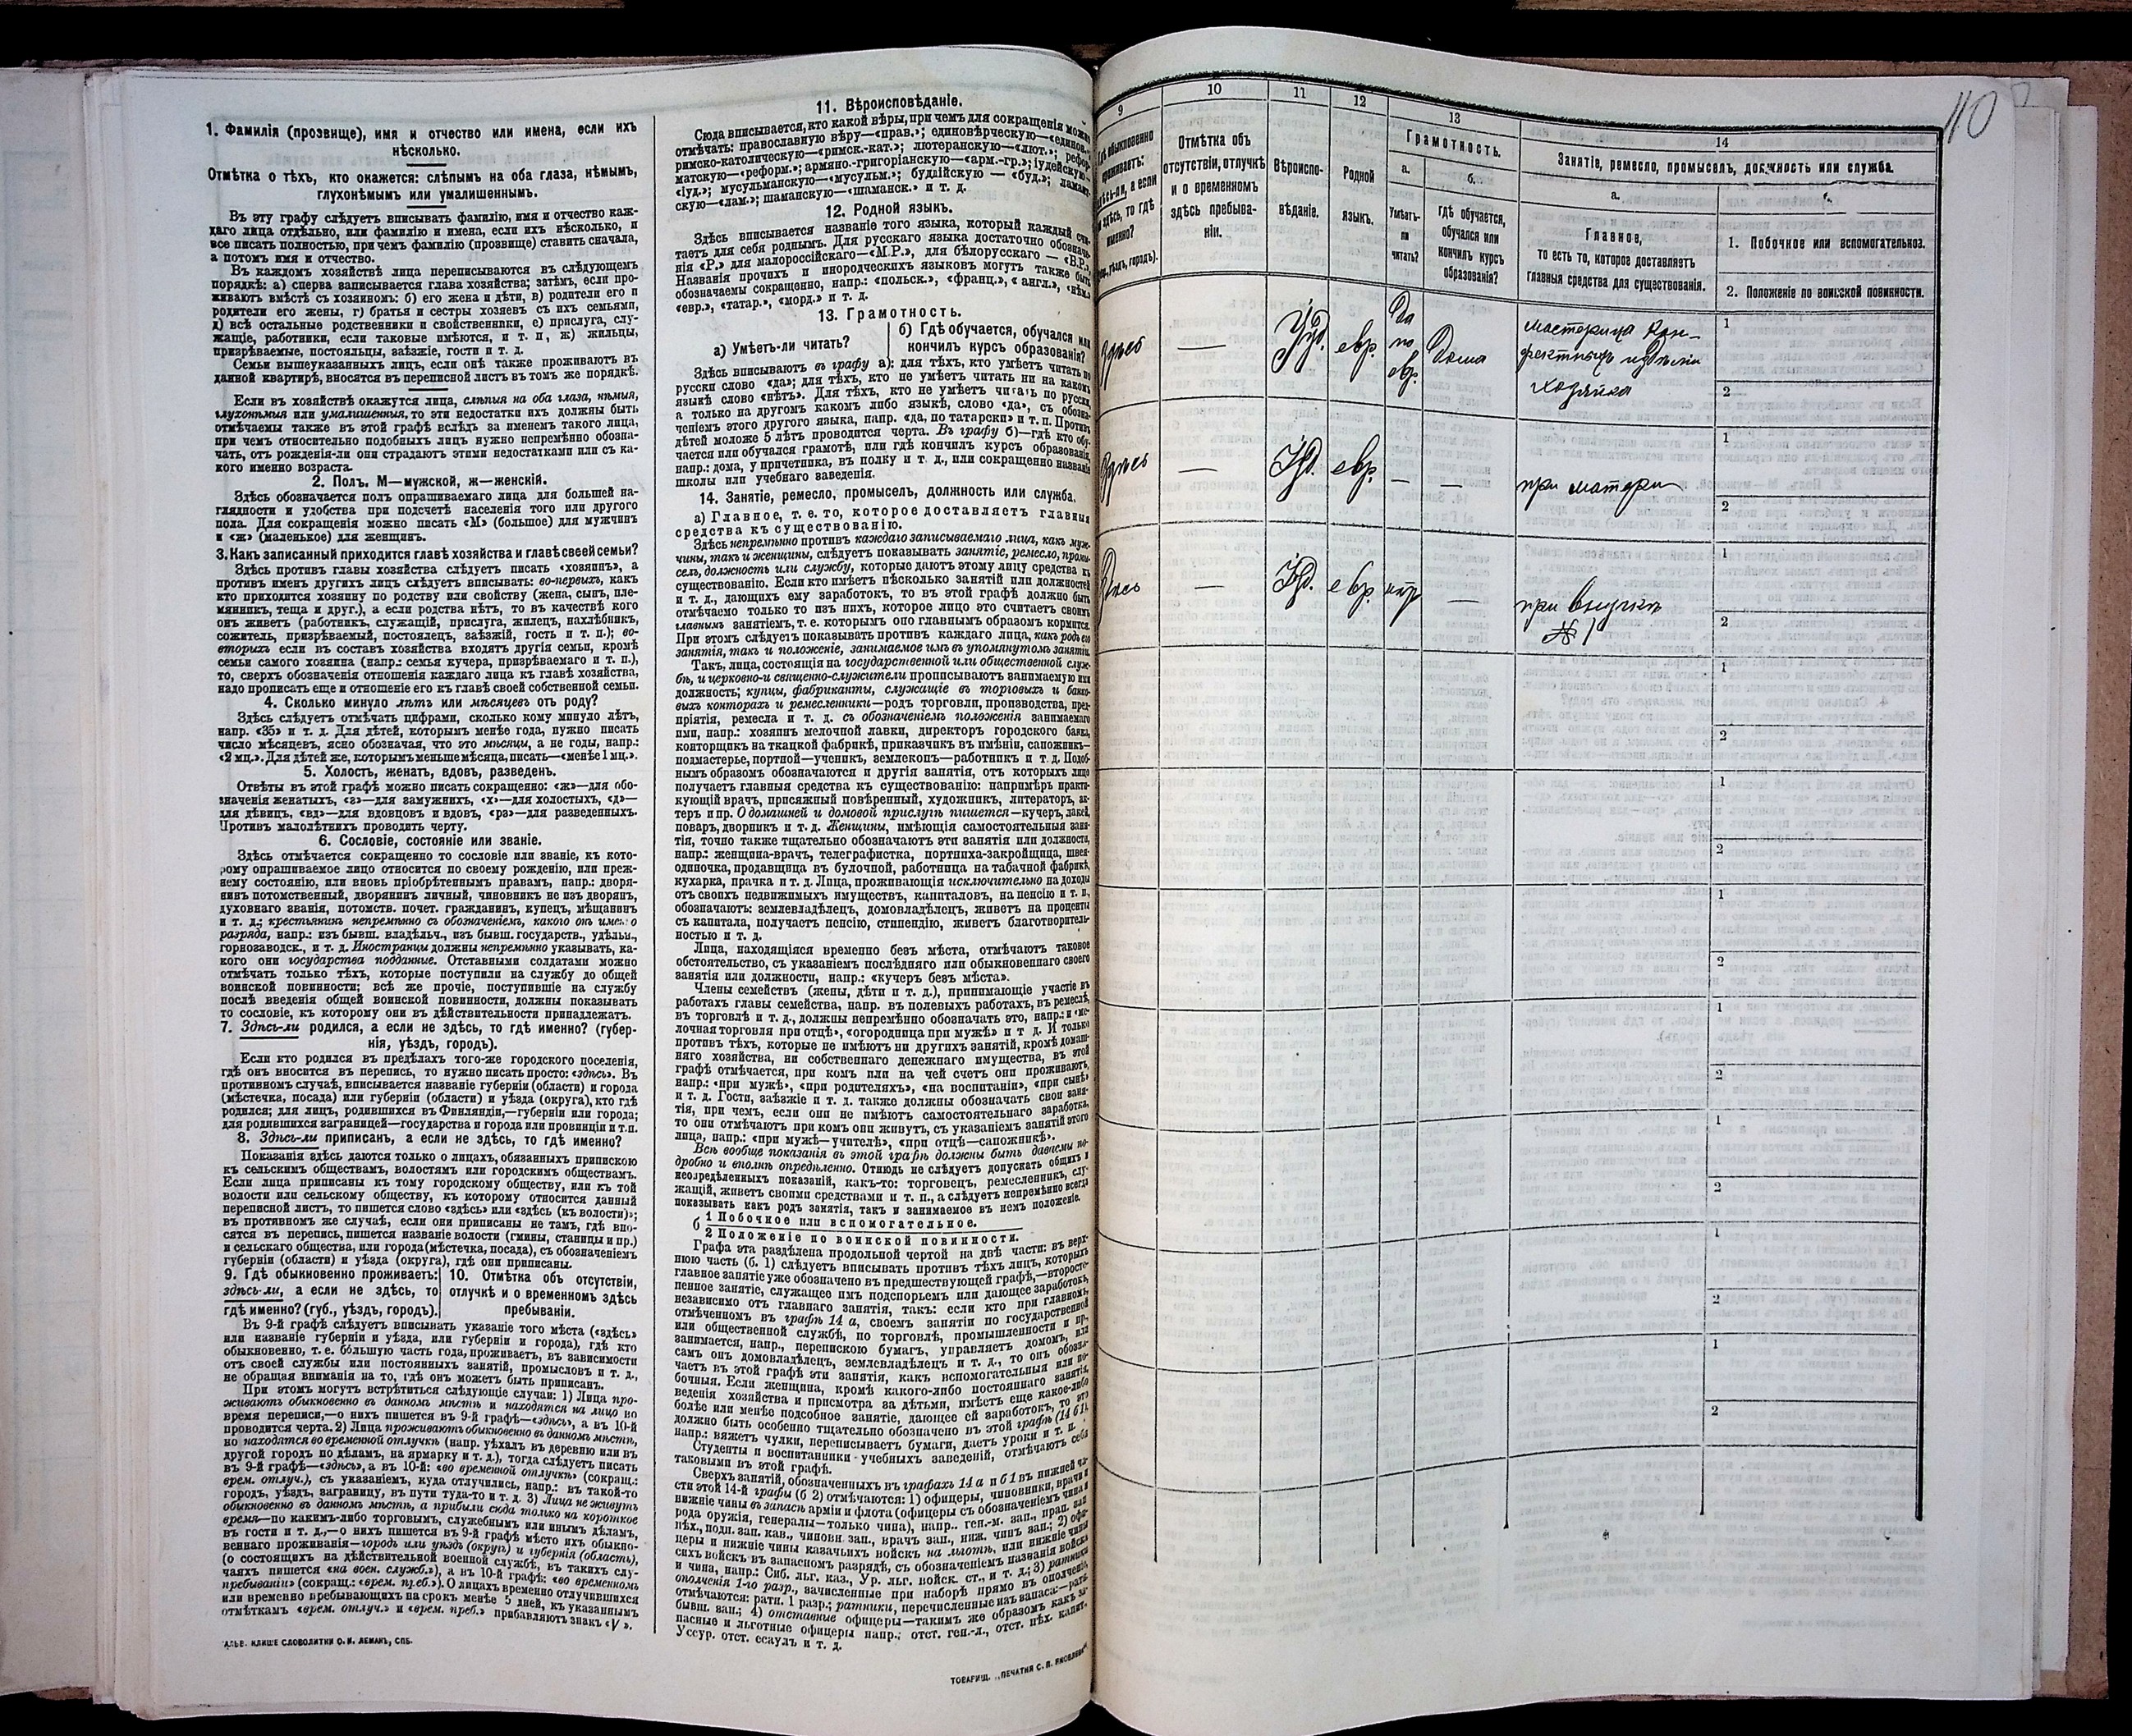 1. Фамилія (прозвище), имя и отчество или имена, если ихъ
нѣсколько.
Отмѣтка о тѣхъ, кто окажется: слѣпымъ на оба глаза, нѣмымъ,
глухонѣмымъ или умалишеннымъ.
Въ эту графу слѣдуетъ вписывать фамилію, имя и отчество каж-
даго лица отдѣльно, или фамилію и имена, если ихъ нѣсколько, и
все писать полностью, при чемъ фамилію (прозвище) ставить сначала,
а потомъ имя и отчество.
Въ каждомъ хозяйствѣ лица переписываются въ слѣдующемъ
порядкѣ: а) сперва записывается глава хозяйства; затѣмъ, если про-
живаютъ вмѣстѣ съ хозяиномъ: б) его жена и дѣти, в) родители его и
родители его жены, г) братья и сестры хозяевъ съ ихъ семьями,
д) всѣ остальные родственники и свойственники, е) прислуга, слу-
жащіе, работники, если таковые имѣются, и т. п., ж) жильцы,
призрѣваемые, постояльцы, заѣзжіе, гости и т. п.
Семьи вышеуказанныхъ лицъ, если онѣ также проживаютъ въ
данной квартирѣ, вносятся въ переписной листъ въ томъ же порядкѣ.
Если въ хозяйствѣ окажутся лица, слѣпыя на оба глаза, нѣмыя,
глухонѣмыя или умалишенныя, то эти недостатки ихъ должны быть
отмѣчаемы также въ этой графѣ вслѣдъ за именемъ такого лица,
при чемъ относительно подобныхъ лицъ нужно непремѣнно обозна-
чать, отъ рожденія-ли они страдаютъ этими недостатками или съ ка-
кого именно возраста.
2. Полъ. М—мужской, ж—женскій.
Здѣсь обозначается полъ опрашиваемаго лица для большей на-
глядности и удобства при подсчетѣ населенія того или другого
пола. Для сокращенія можно писать «М» (большое) для мужчинъ
и «ж» (маленькое) для женщинъ.
3. Какъ записанный приходится главѣ хозяйства и главѣ своей семьи?
Здѣсь противъ главы хозяйства слѣдуетъ писать «хозяинъ», а
противъ именъ другихъ лицъ слѣдуетъ вписывать: во-первыхъ, какъ
кто приходится хозяину по родству или свойству (жена, сынъ, пле-
мянникъ, теща и друг.), а если родства нѣтъ, то въ качествѣ кого
онъ живетъ (работникъ, служащій, прислуга, жилецъ, нахлѣбникъ,
сожитель, призрѣваемый, постоялецъ, заѣзжій, гость и т. п.); во-
вторыхъ если въ составъ хозяйства входятъ другія семьи, кромѣ
семьи самого хозяина (напр.: семья кучера, призрѣваемаго и т. п.),
то, сверхъ обозначенія отношенія каждаго лица къ главѣ хозяйства,
надо прописать еще и отношеніе его къ главѣ своей собственной семьи.
4. Сколько минуло лѣтъ или мѣсяцевъ отъ роду?
Здѣсь слѣдуетъ отмѣчать цифрами, сколько кому минуло лѣтъ,
напр. «35» и т. д. Для дѣтей, которымъ менѣе года, нужно писать
число мѣсяцевъ, ясно обозначая, что это мѣсяцы, а не годы, напр.:
«2 мц.». Для дѣтей же, которымъ меньше мѣсяца, писать—«менѣе 1 мц.».
5. Холостъ, женатъ, вдовъ, разведенъ.
Отвѣты въ этой графѣ можно писать сокращенно: «ж»—для обо-
значенія женатыхъ, «з»—для замужнихъ, «х»—для холостыхъ, «д»—
для дѣвицъ, «вд»—для вдовцовъ и вдовъ, «рз»—для разведенныхъ.
Противъ малолѣтнихъ проводить черту.
6. Сословіе, состояніе или званіе.
Здѣсь отмѣчается сокращенно то сословіе или званіе, къ кото-
рому опрашиваемое лицо относится по своему рожденію, или преж-
нему состоянію, или вновь пріобрѣтеннымъ правамъ, напр.: дворя-
нинъ потомственный, дворянинъ личный, чиновникъ не изъ дворянъ,
духовнаго званія, потомств. почет. гражданинъ, купецъ, мѣщанинъ
и т. д.; крестьянинъ непремѣнно съ обозначеніемъ, какого онъ имен:о
разряда, напр.: изъ бывш. владѣльч., изъ бывш. государств., удѣльн.,
горнозаводск., и т. д. Иностранцы должны непремѣнно указывать, ка-
кого они государства подданные. Отставными солдатами можно
отмѣчать только тѣхъ, которые поступили на службу до общей
воинской повинности; всѣ же прочіе, поступившіе на службу
послѣ введенія общей воинской повинности, должны показывать
то сословіе, къ которому они въ дѣйствительности принадлежатъ.
7. Здѣсь-ли родился, а если не здѣсь, то гдѣ именно? (губер-
нія, уѣздъ, городъ).
Если кто родился въ предѣлахъ того-же городского поселенія,
гдѣ онъ вносится въ перепись, то нужно писать просто: «здѣсь». Въ
противномъ случаѣ, вписывается названіе губерніи (области) и города
(мѣстечка, посада) или губерніи (области) и уѣзда (округа), кто гдѣ
родился; для лицъ, родившихся въ Финляндіи,—губерніи или города;
для родившихся заграницей—государства и города или провинціи и т.п.
8. Здѣсь-ли приписанъ, а если не здѣсь, то гдѣ именно?
Показанія здѣсь даются только о лицахъ, обязанныхъ припискою
къ сельскимъ обществамъ, волостямъ или городскимъ обществамъ.
Если лица приписаны къ тому городскому обществу, или къ той
волости или сельскому обществу, къ которому относится данный
переписной листъ, то пишется слово «здѣсь» или «здѣсь (къ волости)»;
въ противномъ же случаѣ, если они приписаны не тамъ, гдѣ вно-
сятся въ перепись, пишется названіе волости (гмины, станицы и пр.)
и сельскаго общества, или города (мѣстечка, посада), съ обозначеніемъ
губерніи (области) и уѣзда (округа), гдѣ они приписаны.
9. Гдѣ обыкновенно проживаетъ:
здѣсь-ли, а если не здѣсь, то
гдѣ именно? (губ., уѣздъ, городъ).
10. Отмѣтка объ отсутствіи,
отлучкѣ и о временномъ здѣсь
пребываніи.
Въ 9-й графѣ слѣдуетъ вписывать указаніе того мѣста («здѣсь»
или названіе губерніи и уѣзда, или губерніи и города), гдѣ кто
обыкновенно, т. е. бóльшую часть года, проживаетъ, въ зависимости
отъ своей службы или постоянныхъ занятій, промысловъ и т. д.,
не обращая вниманія на то, гдѣ онъ можетъ быть приписанъ.
При этомъ могутъ встрѣтиться слѣдующіе случаи: 1) Лица про-
живаютъ обыкновенно въ данномъ мѣстѣ и находятся на лицо во
время переписи,—о нихъ пишется въ 9-й графѣ—«здѣсь», а въ 10-й
проводится черта. 2) Лица проживаютъ обыкновенно въ данномъ мѣстѣ,
но находятся во временной отлучкѣ (напр. уѣхалъ въ деревню или въ
другой городъ по дѣламъ, на ярмарку и т. д.), тогда слѣдуетъ писать
въ 9-й графѣ—«здѣсь», а въ 10-й: «во временной отлучкѣ» (сокращ.:
врем. отлуч.), съ указаніемъ, куда отлучились, напр.: въ такой-то
городъ, уѣздъ, заграницу, въ пути туда-то и т. д. 3) Лица не живутъ
обыкновенно въ данномъ мѣстѣ, а прибыли сюда только на короткое
время—по какимъ-либо торговымъ, служебнымъ или инымъ дѣламъ,
въ гости и т. д.,—о нихъ пишется въ 9-й графѣ мѣсто ихъ обыкно-
веннаго проживанія—городъ или уѣздъ (округъ) и губернія (область),
(о состоящихъ на дѣйствительной военной службѣ, въ такихъ слу-
чаяхъ пишется «на воен. службѣ.»), а въ 10-й графѣ: «во временномъ
пребываніи» (сокращ.: «врем. преб.»). О лицахъ временно отлучившихся
или временно пребывающихъ на срокъ менѣе 5 дней, къ указаннымъ
отмѣткамъ «врем. отлуч.» и «врем. преб.» прибавляютъ знакъ «V».
КЛИШЕ СЛОВОЛИТНИ О. И. ЛЕМАНЪ, СПБ.
11. Вѣроисповѣданіе.
Сюда вписывается, кто какой вѣры, при чемъ для сокращенія можно
отмѣчать: православную вѣру—«прав.»; единовѣрческую—«единов.»
римско-католическую—«римск.-кат.»; лютеранскую—«лют.»; рефор-
матскую—«реформ.»; армяно.-григоріанскую—«арм.-гр.»; іудейскую—
«іуд.»; мусульманскую—«мусульм.»; буддійскую — «буд.»; ламаит-
скую—«лам.»; шаманскую—«шаманск.» и т. д.
12. Родной языкъ.
Здѣсь вписывается названіе того языка, который каждый счи-
таетъ для себя роднымъ. Для русскаго языка достаточно обозначе-
нія «Р.» для малороссійскаго—«М.Р.», для бѣлорусскаго — «В.Р.»,
Названія прочихъ и инородческихъ языковъ могутъ также быть
обозначаемы сокращенно, напр.: «польск.», «франц.», «англ.», «нѣм.»
«евр.», «татар.», «морд.» и т. д.
13. Грамотность.
а) Умѣетъ-ли читать?
б) Гдѣ обучается, обучался или
кончилъ курсъ образованія?
Здѣсь вписываютъ въ графу а): для тѣхъ, кто умѣетъ читать по
русски слово «да»; для тѣхъ, кто не умѣетъ читать ни на какомъ
языкѣ слово «нѣтъ». Для тѣхъ, кто не умѣетъ читать по русски,
а только на другомъ какомъ либо языкѣ, слово «да», съ обозна-
ченіемъ этого другого языка, напр. «да, по татарски» и т. п. Противъ
дѣтей моложе 5 лѣтъ проводится черта. Въ графу б)—гдѣ кто обу-
чается или обучался грамотѣ, или гдѣ кончилъ курсъ образованія,
напр.: дома, у причетника, въ полку и т. д., или сокращенно названіе
школы или учебнаго заведенія.
14. Занятіе, ремесло, промыселъ, должность или служба.
а) Главное, т. е. то, которое доставляетъ главныя
средства къ существованію.
Здѣсь непремѣнно противъ каждаго записываемаго лица, какъ муж-
чины, такъ и женщины, слѣдуетъ показывать занятіе, ремесло, промы-
селъ, должность или службу, которые даютъ этому лицу средства къ
существованію. Если кто имѣетъ нѣсколько занятій или должностей
и т. д., дающихъ ему заработокъ, то въ этой графѣ должно быть
отмѣчаемо только то изъ нихъ, которое лицо это считаетъ своимъ
главнымъ занятіемъ, т. е. которымъ оно главнымъ образомъ кормится.
При этомъ слѣдуетъ показывать противъ каждаго лица, какъ родъ его
занятія, такъ и положеніе, занимаемое имъ въ упомянутомъ занятіи.
Такъ, лица, состоящія на государственной или общественной служ-
бѣ, и церковно-и священно-служители прописываютъ занимаемую ими
должность; купцы, фабриканты, служащіе въ торговыхъ и банко-
выхъ конторахъ и ремесленники—родъ торговли, производства, пред-
пріятія, ремесла и т. д. съ обозначеніемъ положенія занимаемаго
ими, напр.: хозяинъ мелочной лавки, директоръ городского банка,
конторщикъ на ткацкой фабрикѣ, приказчикъ въ имѣніи, сапожникъ—
подмастерье, портной—ученикъ, землекопъ—работникъ и т. д. Подоб-
нымъ образомъ обозначаются и другія занятія, отъ которыхъ лицо
получаетъ главныя средства къ существованію: напримѣръ практи-
кующій врачъ, присяжный повѣренный, художникъ, литераторъ, ак-
теръ и пр. О домашней и домовой прислугѣ пишется—кучеръ, лакей,
поваръ, дворникъ и т. д. Женщины, имѣющія самостоятельныя заня-
тія, точно также тщательно обозначаютъ эти занятія или должности,
напр.: женщина-врачъ, телеграфистка, портниха-закройщица, швея-
одиночка, продавщица въ булочной, работница на табачной фабрикѣ,
кухарка, прачка и т. д. Лица, проживающія исключительно на доходы
отъ своихъ недвижимыхъ имуществъ, капиталовъ, на пенсію и т. п.,
обозначаютъ: землевладѣлецъ, домовладѣлецъ, живетъ на проценты
съ капитала, получаетъ пенсію, стипендію, живетъ благотворитель-
ностью и т. д.
Лица, находящіяся временно безъ мѣста, отмѣчаютъ таковое
обстоятельство, съ указаніемъ послѣдняго или обыкновеннаго своего
занятія или должности, напр.: «кучеръ безъ мѣста».
Члены семействъ (жены, дѣти и т. д.), принимающіе участіе въ
работахъ главы семейства, напр. въ полевыхъ работахъ, въ ремеслѣ,
въ торговлѣ и т. д., должны непремѣнно обозначать это, напр.: «ме-
лочная торговля при отцѣ», «огородница при мужѣ» и т. д. И только
противъ тѣхъ, которые не имѣютъ ни другихъ занятій, кромѣ домаш-
няго хозяйства, ни собственнаго денежнаго имущества, въ этой
графѣ отмѣчается, при комъ или на чей счетъ они проживаютъ,
напр.: «при мужѣ», «при родителяхъ», «на воспитаніи», «при сынѣ»
и т. д. Гости, заѣзжіе и т. д. также должны обозначать свои заня-
тія, при чемъ, если они не имѣютъ самостоятельнаго заработка,
то они отмѣчаютъ при комъ они живутъ, съ указаніемъ занятій этого
лица, напр.: «при мужѣ—учителѣ», «при отцѣ—сапожникѣ».
Всѣ вообще показанія въ этой графѣ должны быть даваемы по-
дробно и вполнѣ опредѣленно. Отнюдь не слѣдуетъ допускать общихъ и
неопредѣленныхъ показаній, какъ-то: торговецъ, ремесленникъ, слу-
жащій, живетъ своими средствами и т. п., а слѣдуетъ непремѣнно всегда
показывать какъ родъ занятія, такъ и занимаемое въ немъ положеніе.
б 1 Побочное или вспомогательное.
2 Положеніе по воинской повинности.
Графа эта раздѣлена продольной чертой на двѣ части: въ верх-
нюю часть (б. 1) слѣдуетъ вписывать противъ тѣхъ лицъ, которыхъ
главное занятіе уже обозначено въ предшествующей графѣ,—второсте-
пенное занятіе, служащее имъ подспорьемъ или дающее заработокъ,
независимо отъ главнаго занятія, такъ: если кто при главномъ,
отмѣченномъ въ графѣ 14 а, своемъ занятіи по государственной
или общественной службѣ, по торговлѣ, промышленности и пр.,
занимается, напр., перепискою бумагъ, управляетъ домомъ, или
самъ онъ домовладѣлецъ, землевладѣлецъ и т. д., то онъ обозна-
чаетъ въ этой графѣ эти занятія, какъ вспомогательныя или по-
бочныя. Если женщина, кромѣ какого-либо постояннаго занятія,
веденія хозяйства и присмотра за дѣтьми, имѣетъ еще какое-либо
болѣе или менѣе подсобное занятіе, дающее ей заработокъ, то это
должно быть особенно тщательно обозначено въ этой графѣ (14 б 1),
напр.: вяжетъ чулки, переписываетъ бумаги, даетъ уроки и т. п.
Студенты и воспитанники учебныхъ заведеній, отмѣчаютъ себя
таковыми въ этой графѣ.
Сверхъ занятій, обозначенныхъ въ графахъ 14 а и б 1 въ нижней ча-
сти этой 14-й графы (б 2) отмѣчаются: 1) офицеры, чиновники, врачи и
нижніе чины въ запасѣ арміи и флота (офицеры съ обозначеніемъ чина и
рода оружія, генералы—только чина), напр.. ген.-м. зап., прап. зап.
пѣх., подп. зап. кав., чиновн. зап., врачъ зап., ниж. чинъ зап.; 2) офи-
церы и нижніе чины казачьихъ войскъ на льготѣ, или нижніе чины
сихъ войскъ въ запасномъ разрядѣ, съ обозначеніемъ названія войска
и чина, напр.: Сиб. льг. каз., Ур. льг. войск. ст., и т. д.; 3) ратники
ополченія 1-го разр., зачисленные при наборѣ прямо въ ополченіе,
отмѣчаются: ратн. 1 разр.; ратники, перечисленные изъ запаса:—ратн.
бывш. зап.; 4) отставные офицеры—такимъ же образомъ какъ за-
пасные и льготные офицеры напр.; отст. ген.-л., отст. пѣх. капит.
Уссур. отст. есаулъ и т. д.
ТОВАРИЩ. „ПЕЧАТНЯ С. П. ЯКОВЛЕВА“.
110
9
10
11
12
13
14
обыкновенно
проживаетъ:
здѣсь-ли, а если
здѣсь, то гдѣ
именно?
уѣздъ, городъ).
Отмѣтка объ
отсутствіи, отлучкѣ
и о временномъ
здѣсь пребыва-
ніи.
Вѣроиспо-
вѣданіе.
Родной
языкъ.
Грамотность.
а.
б.
Умѣетъ-
ли
читать?
гдѣ обучается,
обучался или
кончилъ курсъ
образованія?
Занятіе, ремесло, промыселъ, должность или служба.
а.
Главное,
то есть то, которое доставляетъ
главныя средства для существованія.
1. Побочное или вспомогательноє.
2. Положеніе по воинской повинности.
Здѣсь — Іуд. евр. Да по евр. Дома
мастерица кон-
фектныхъ издѣлій
хозяйка
1
2
Здѣсь — Іуд. евр. — — при матери
1
2
Здѣсь — Іуд. евр. нѣтъ — при внучкѣ
№ 1
1
2
1
2
1
2
1
2
1
2
1
2
1
2
1
2